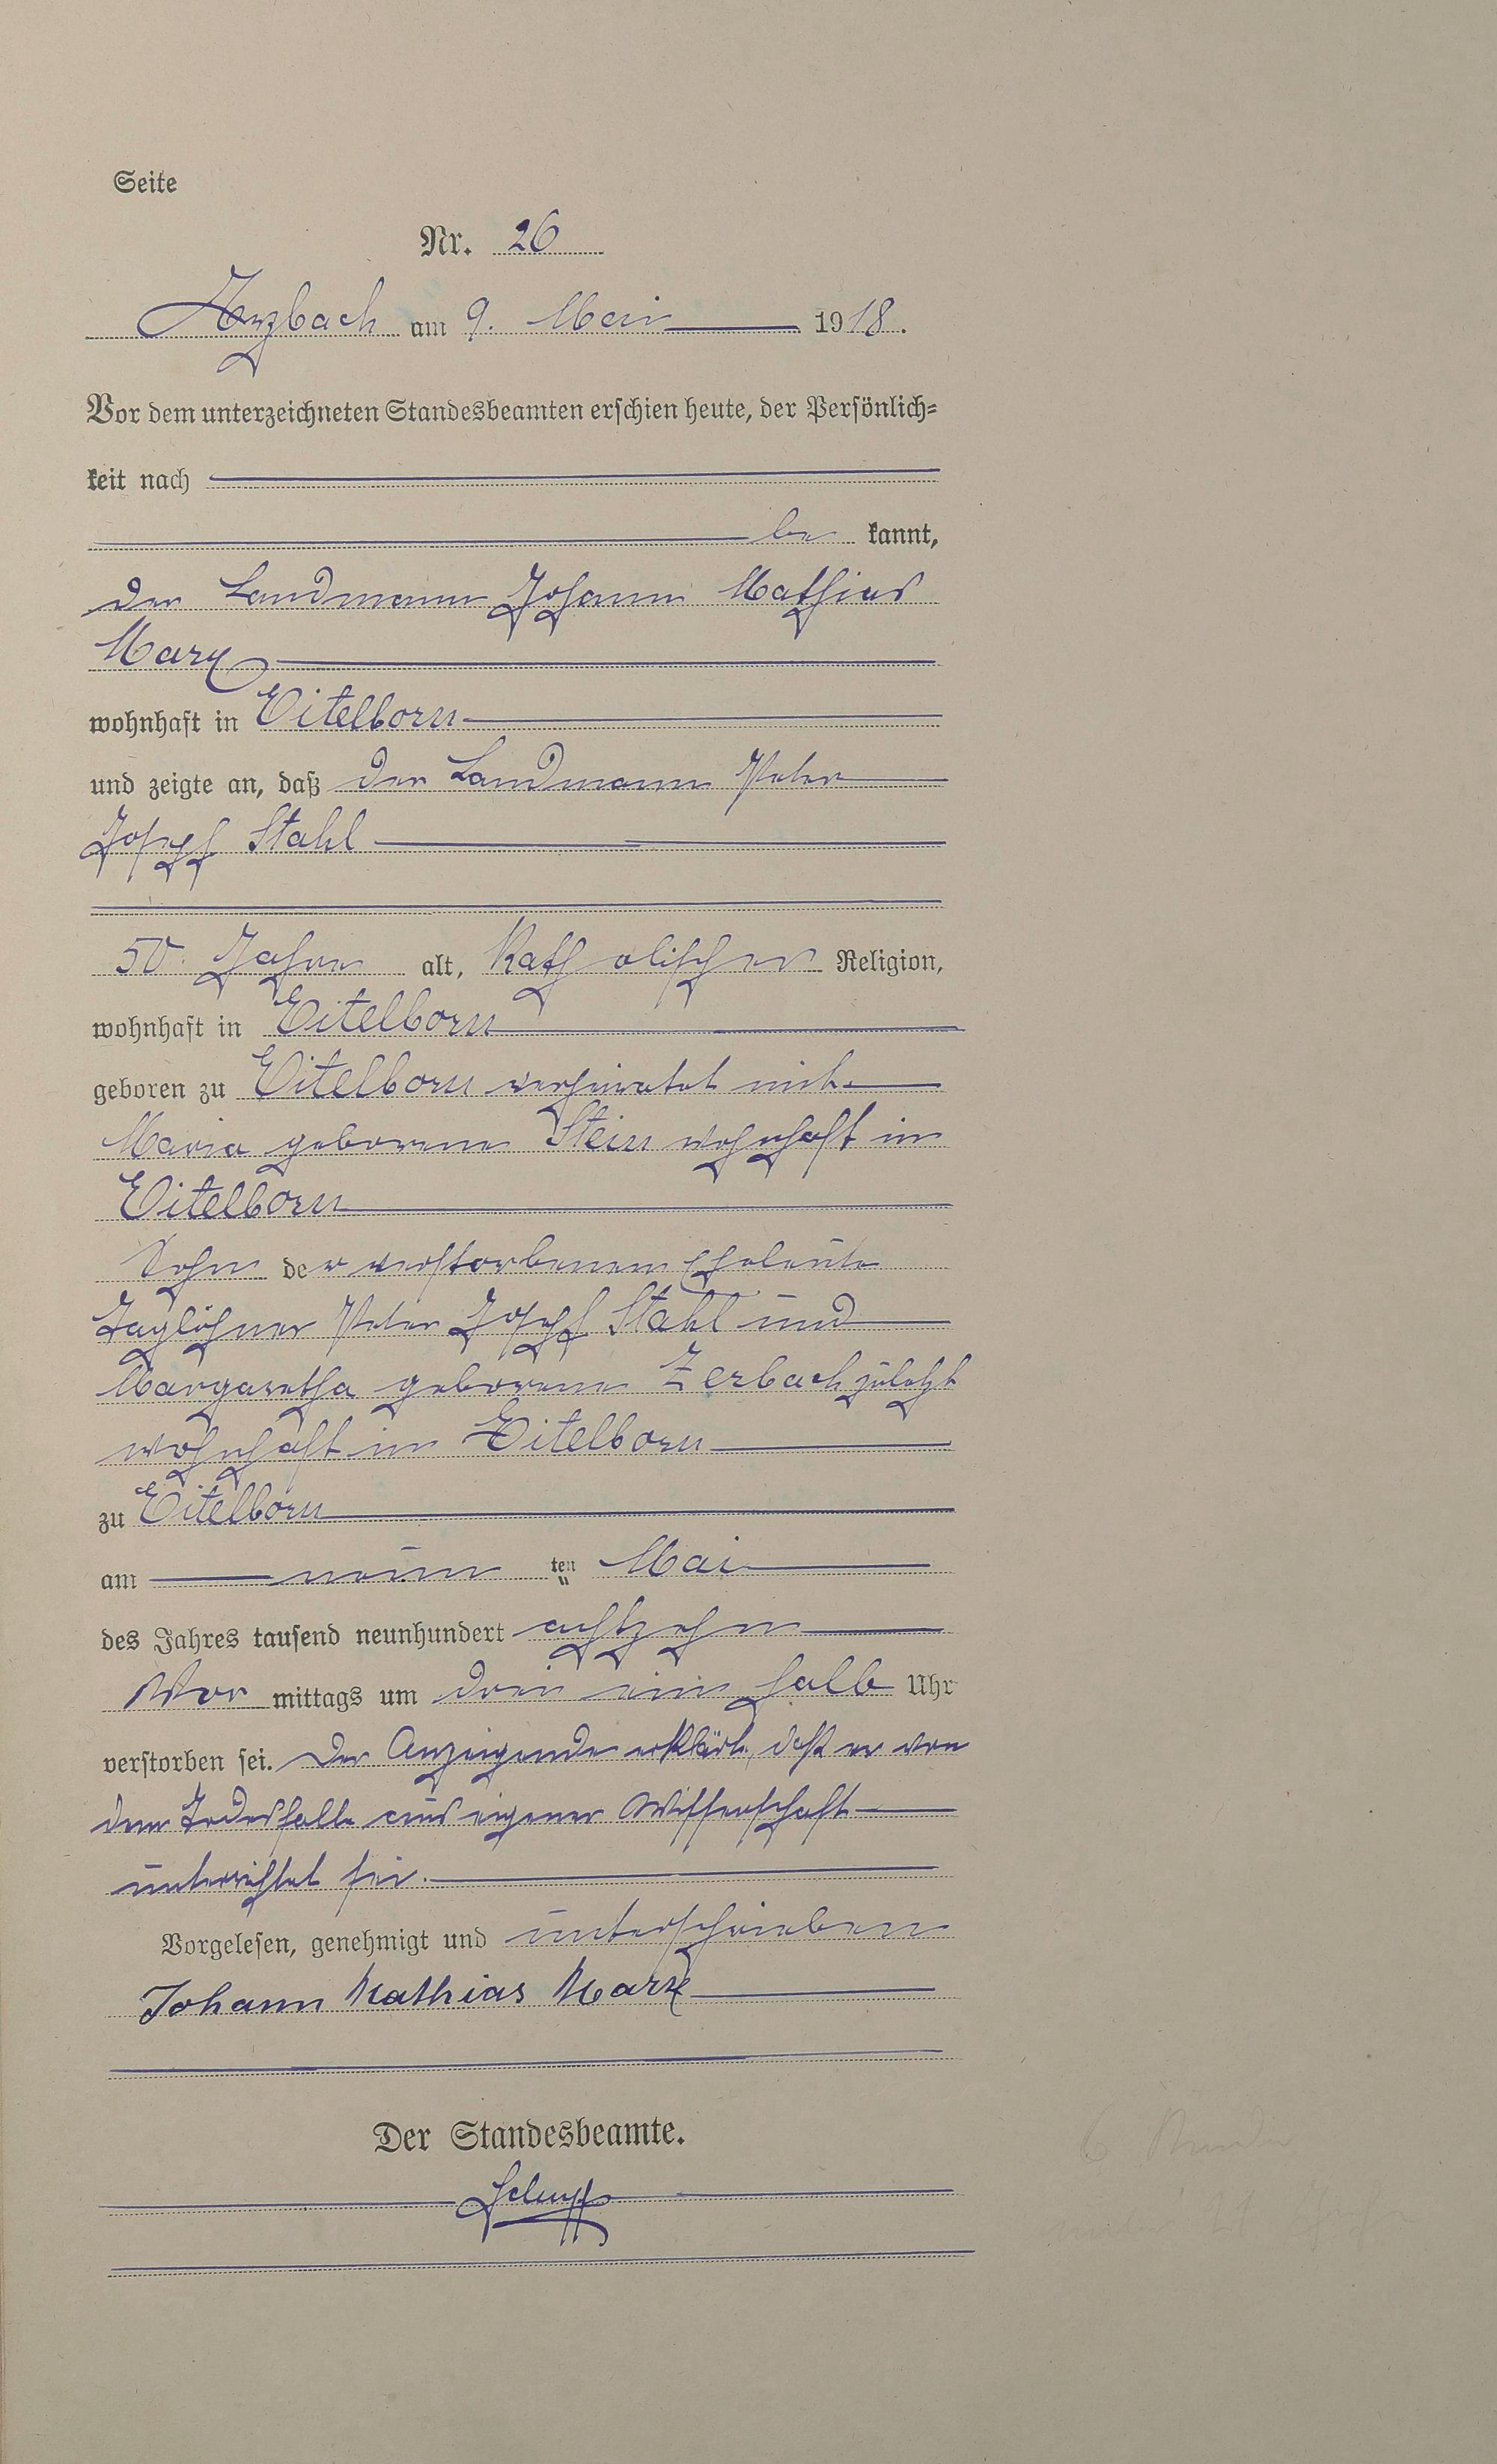 Seite
Nr. 26
Arzbach am 9. Mai 1918.
Vor dem unterzeichneten Standesbeamten erschien heute, der Persönlich=
keit nach
be kannt,
der Landmann Johann Mathias
Marx
wohnhaft in Eitelborn
und zeigte an, daß der Landmann Peter
Josef Stahl
50 Jahre alt, Katholischer Religion,
wohnhaft in Eitelborn
geboren zu Eitelborn verheiratet mit
Maria geborene Stein wohnhaft in
Eitelborn
Sohn der verstorbenen Eheleute
Taglöhner Peter Josef Stahl und
Margaretha geborene Zerbach zuletzt
wohnhaft in Eitelborn
zu Eitelborn
am neun ten Mai
des Jahres tausend neunhundert achtzehn
Vor mittags um drei ein halb Uhr
verstorben sei. Der Anzeigende erklärte, daß er von
dem Todesfalle aus eigener Wissenschaft
unterrichtet sei.
Vorgelesen, genehmigt und unterschrieben
Johann Mathias Marx
Der Standesbeamte.